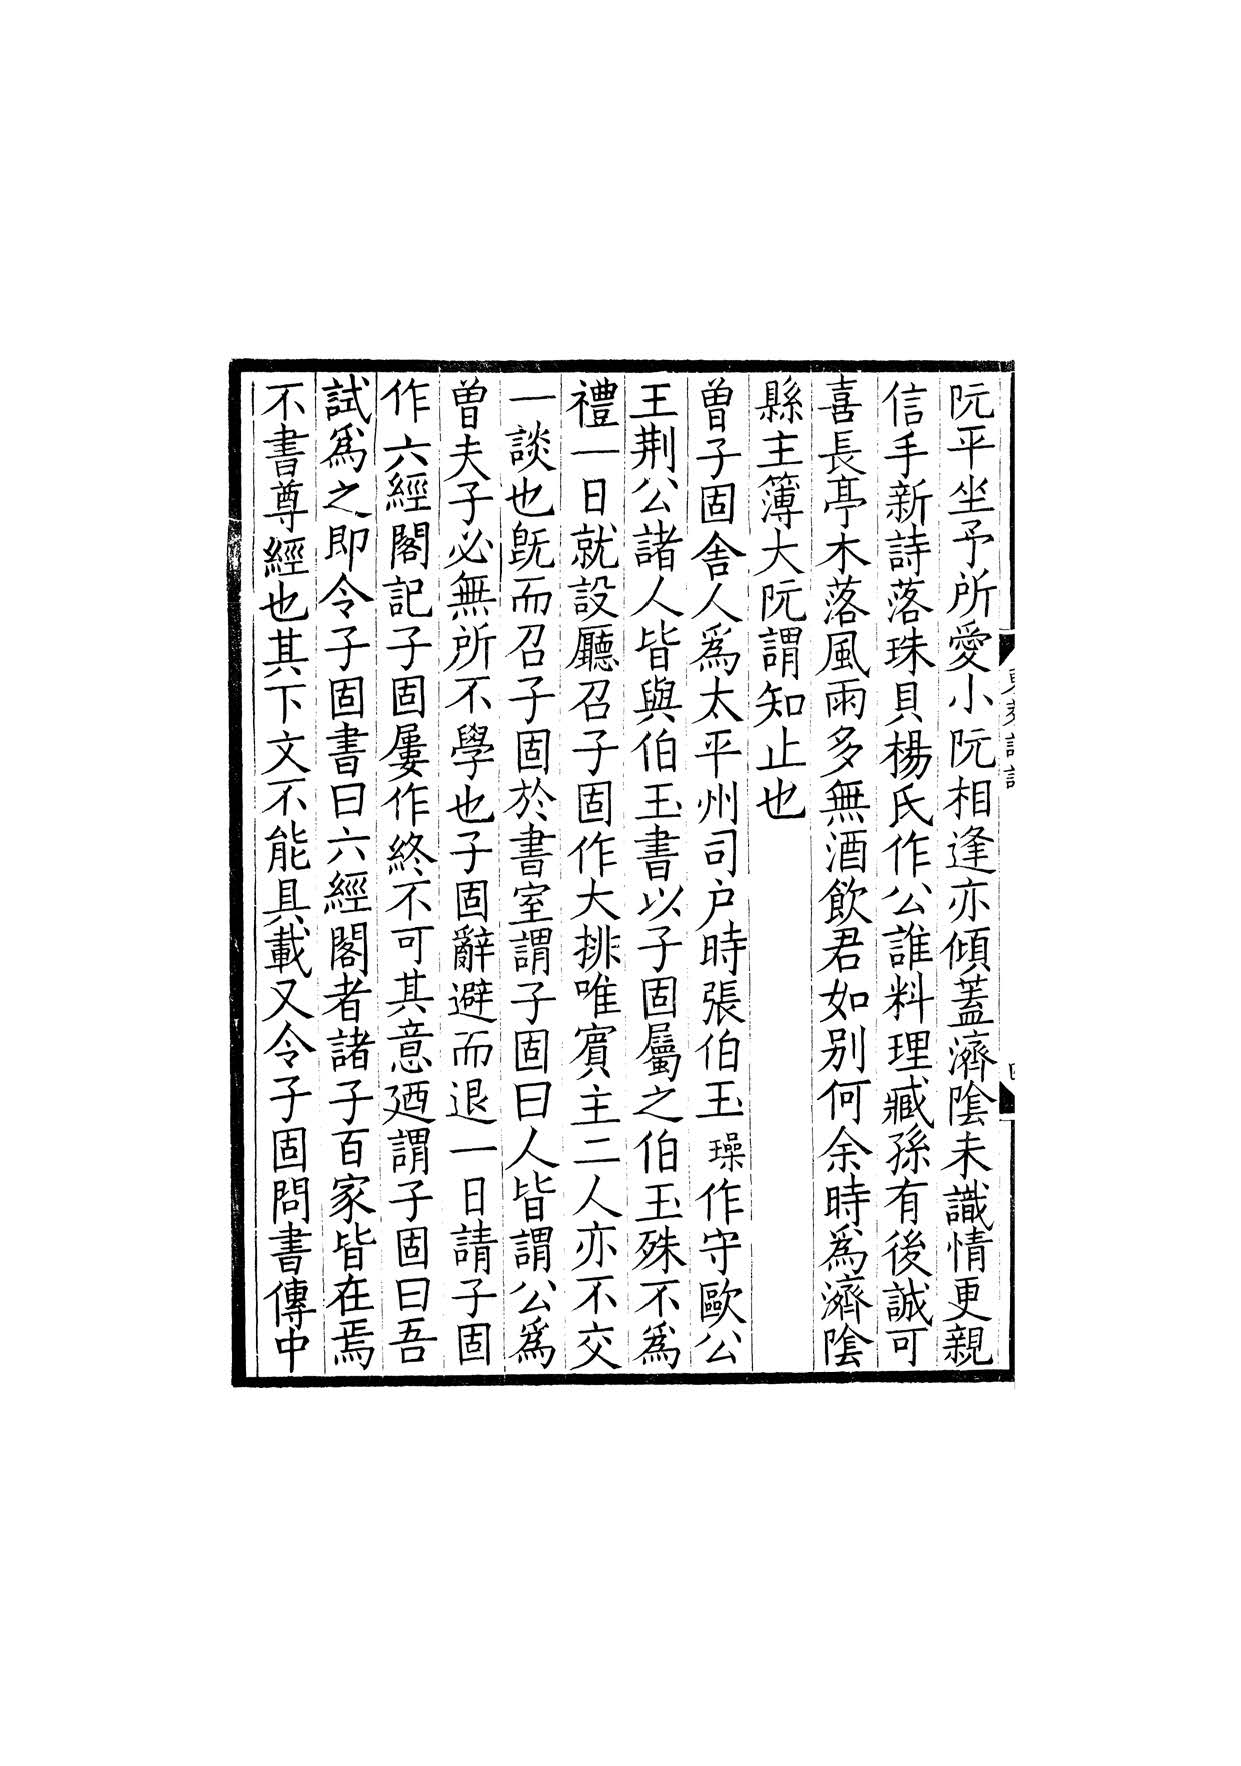 阮平坐予所愛小阮相逢亦傾蓋濟隂未識情更親
信手新詩落珠貝楊氏作公誰料理臧孫有後誠可
喜長亭木落風雨多無酒飲君如别何余時爲濟隂
縣主簿大阮謂知止也
曾子固舍人爲太平州司户時張伯玉璪作守歐公
王荆公諸人皆與伯玉書以子固屬之伯玉殊不爲
禮一日就設廳召子固作大排唯賓主二人亦不交
一談也旣而召子固於書室謂子固曰人皆謂公爲
曾夫子必無所不學也子固辭避而退一日請子固
作六經閣記子固屢作終不可其意廼謂子固曰吾
試爲之即令子固書曰六經閣者諸子百家皆在焉
不書尊經也其下文不能具載又令子固問書傳中